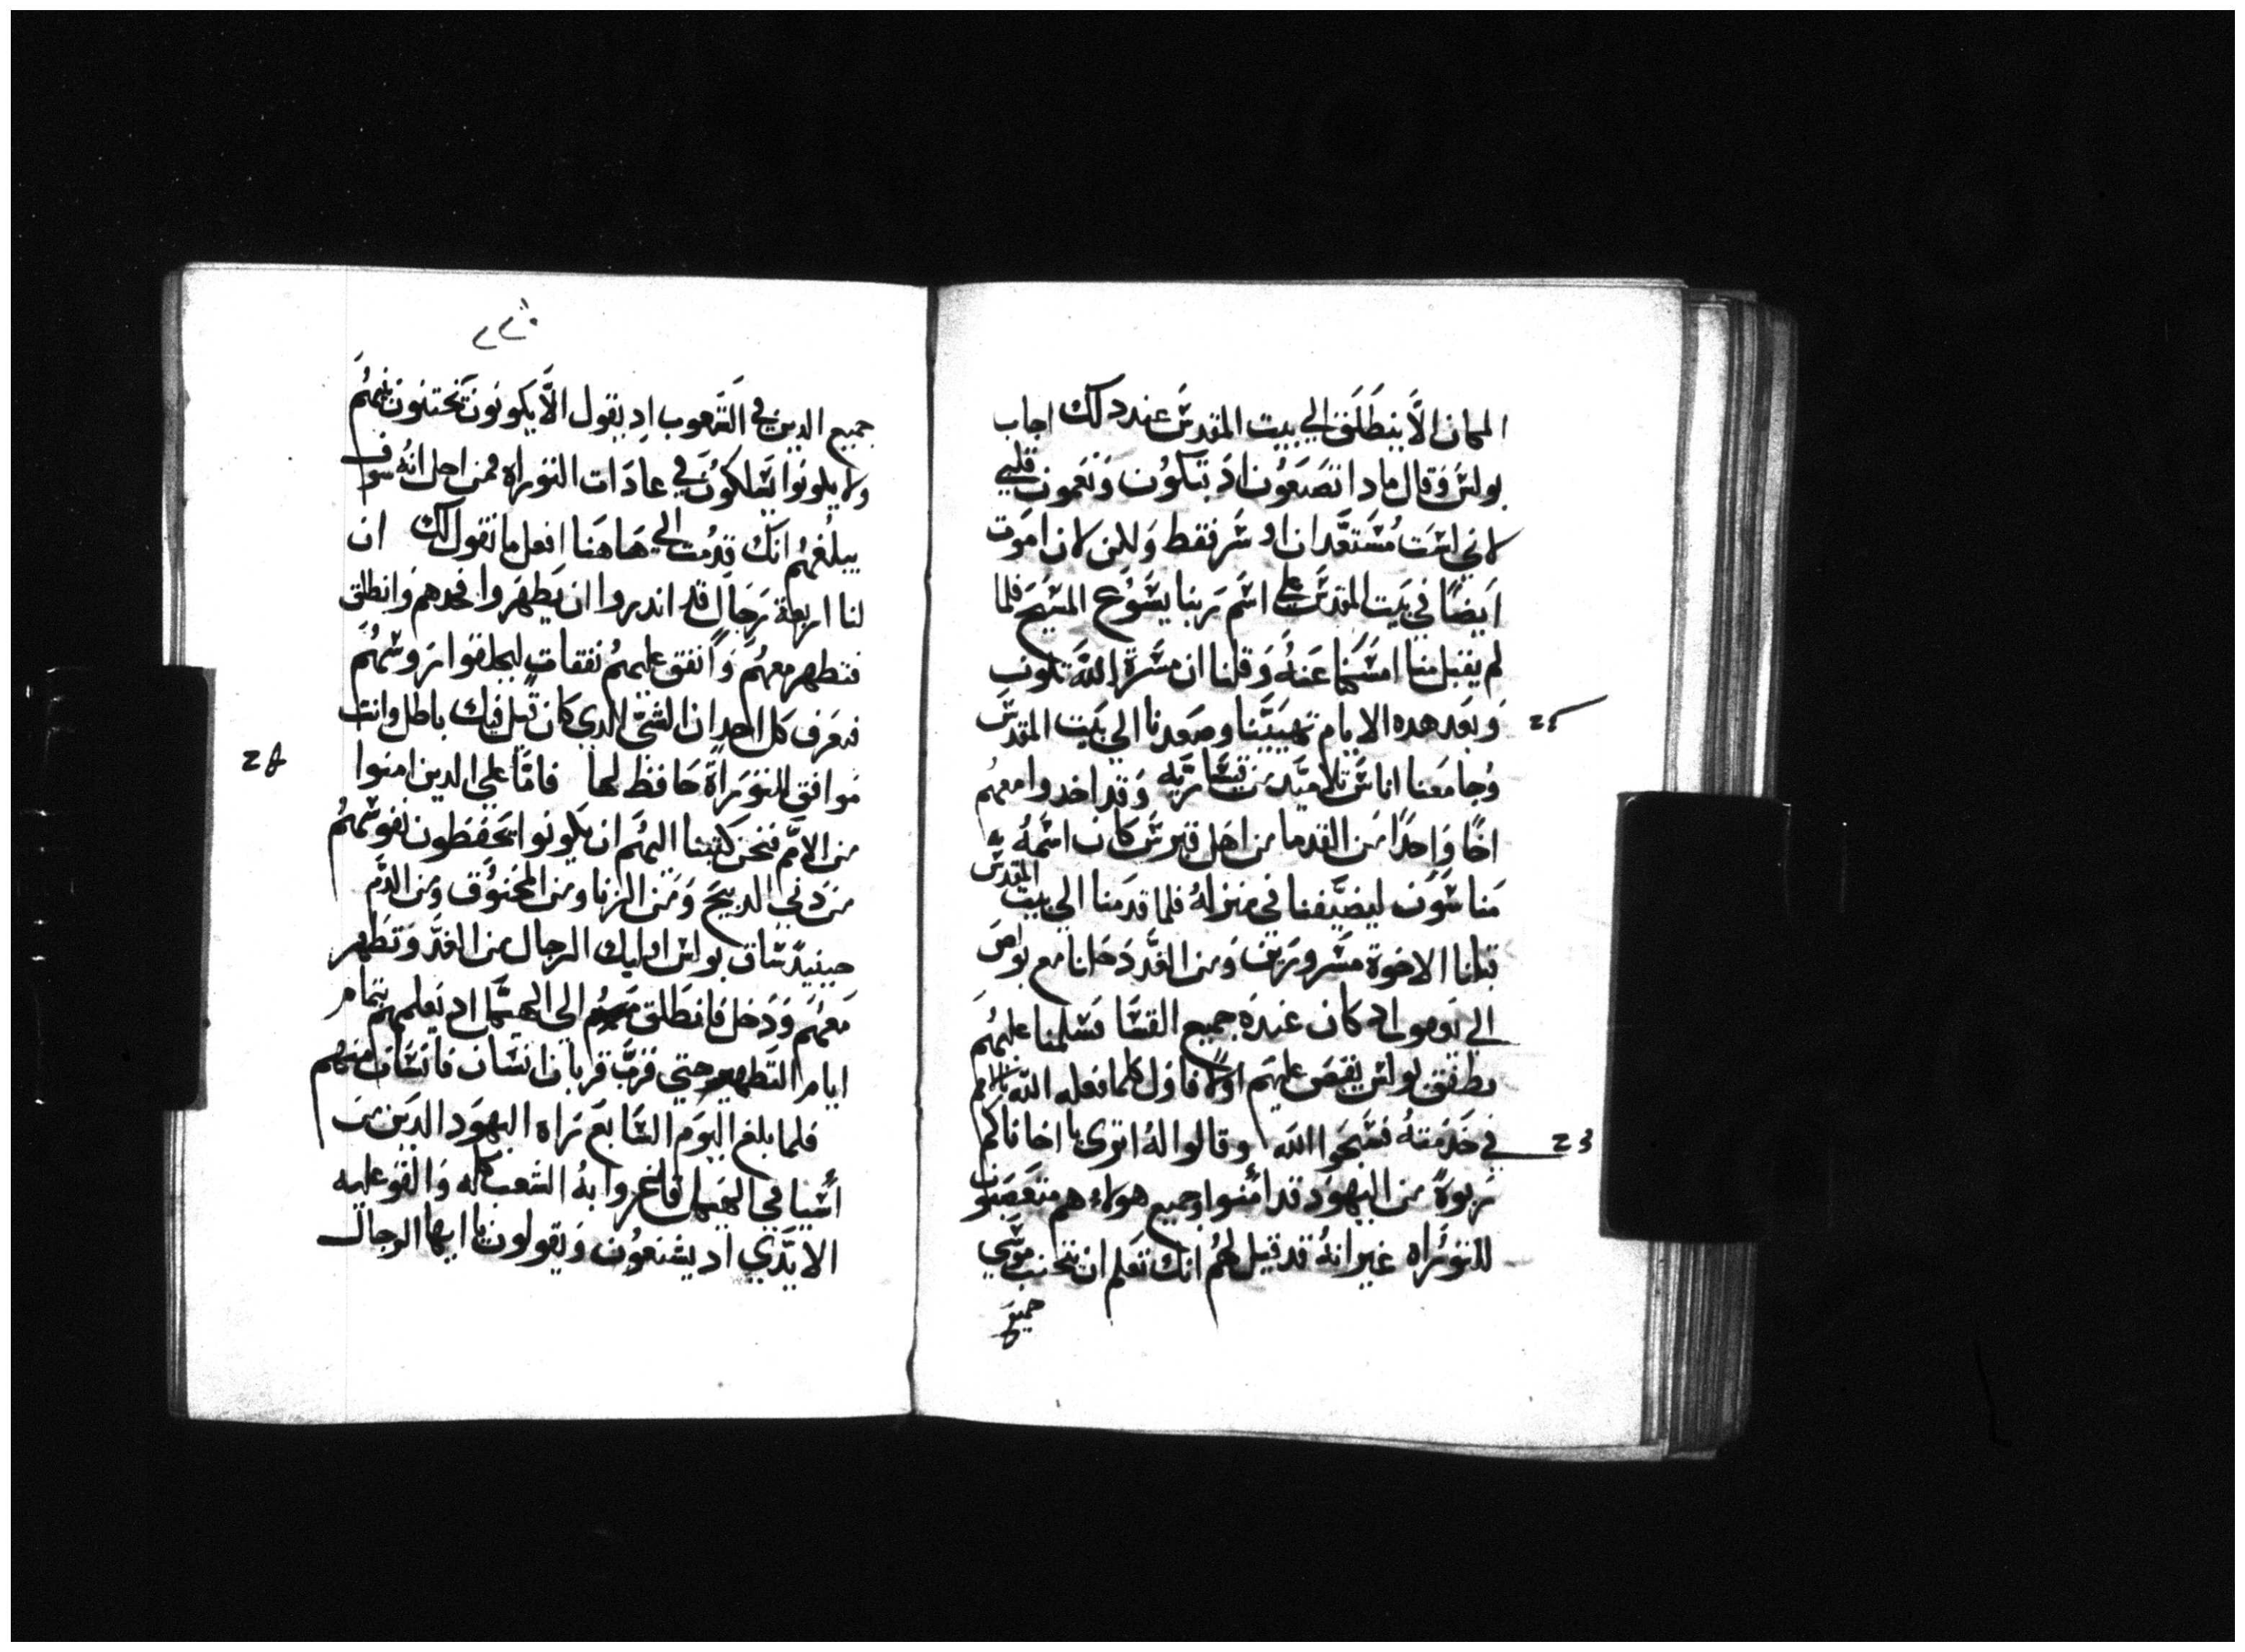 المكان الا ينطلق الي بيت المقدس عند دلك اجاب
بولس وقال مادا تصنعون اد تبكون وتغمون قلبي
لاني لست مستعد ان اوسر فقط ولكن لان اموت
ايضا في بيت المقدس علي اسم ربنا يسوع المسيح فلما
لم يقبل منا امسكنا عنه وقلنا ان مسرة الله تكون
وبعد هده الايام تهييينا وصعدنا الي بيت المقدس
وجا معنا اناس تلاميد من قيسارية وقد اخدوا معهم
اخا واحدا من القدما من اهل قبرس كان اسمه
مناسون ليضيفنا في منزله فلما قدمنا الي بيت المقدس
قبلنا الاخوة مسرورين ومن الغد دخلنا مع بولس
الي اد كان عنده جميع القسا فسلمنا عليهم
وطفق بولس يقص عليهم اولا فاول كلما فعله الله بالامم
في خدمته فسبحوا الله وقالوا له اتري يا اخانا كم
ربوة من اليهود قد امنوا وجميع هولاء هم متعصبون
للتوراه غير انه قد قيل لهم انك تعلم ان نجانب موسي
جميع
جميع الدين في الشعوب اد يقول الا يكونون يختنون بنيهم
ولا يكونوا يسلكون في عادات التوراه فمن اجل انه سوف
يبلغهم انك قدمت الي هاهنا افعل ما نقول لك ان
لنا اربعة رجال قد اندروا ان يطهروا فخدهم وانطلق
فتطهر معهم وانفق عليهم نفقات ليحلقوا روسهم
فيعرف كل احد ان الشي الدي كان قيل فيك باطل وانت
موافق للتوراة حافظ لها فاما علي الدين امنوا
من الامم فنحن كتبنا اليهم ان يكونوا يحفظون نفوسهم
من دبي الدبيح ومن الزنا ومن المخنوق ومن الدم
حينيد ساق بولس اوليك الرجال من الغد وتطهر
معهم ودخل فانطلق الي الهيكل اد يعلمهم بتمام
ايام التطهير حتي قرب قربان انسان فانسان منهم
فلما بلغ اليوم السابع راه اليهود الدين من
اسيا في الهيكل فاغروا به الشعب كله والقو عليه
الايدي اد يشنعون ويقولون يا ايها الرجال